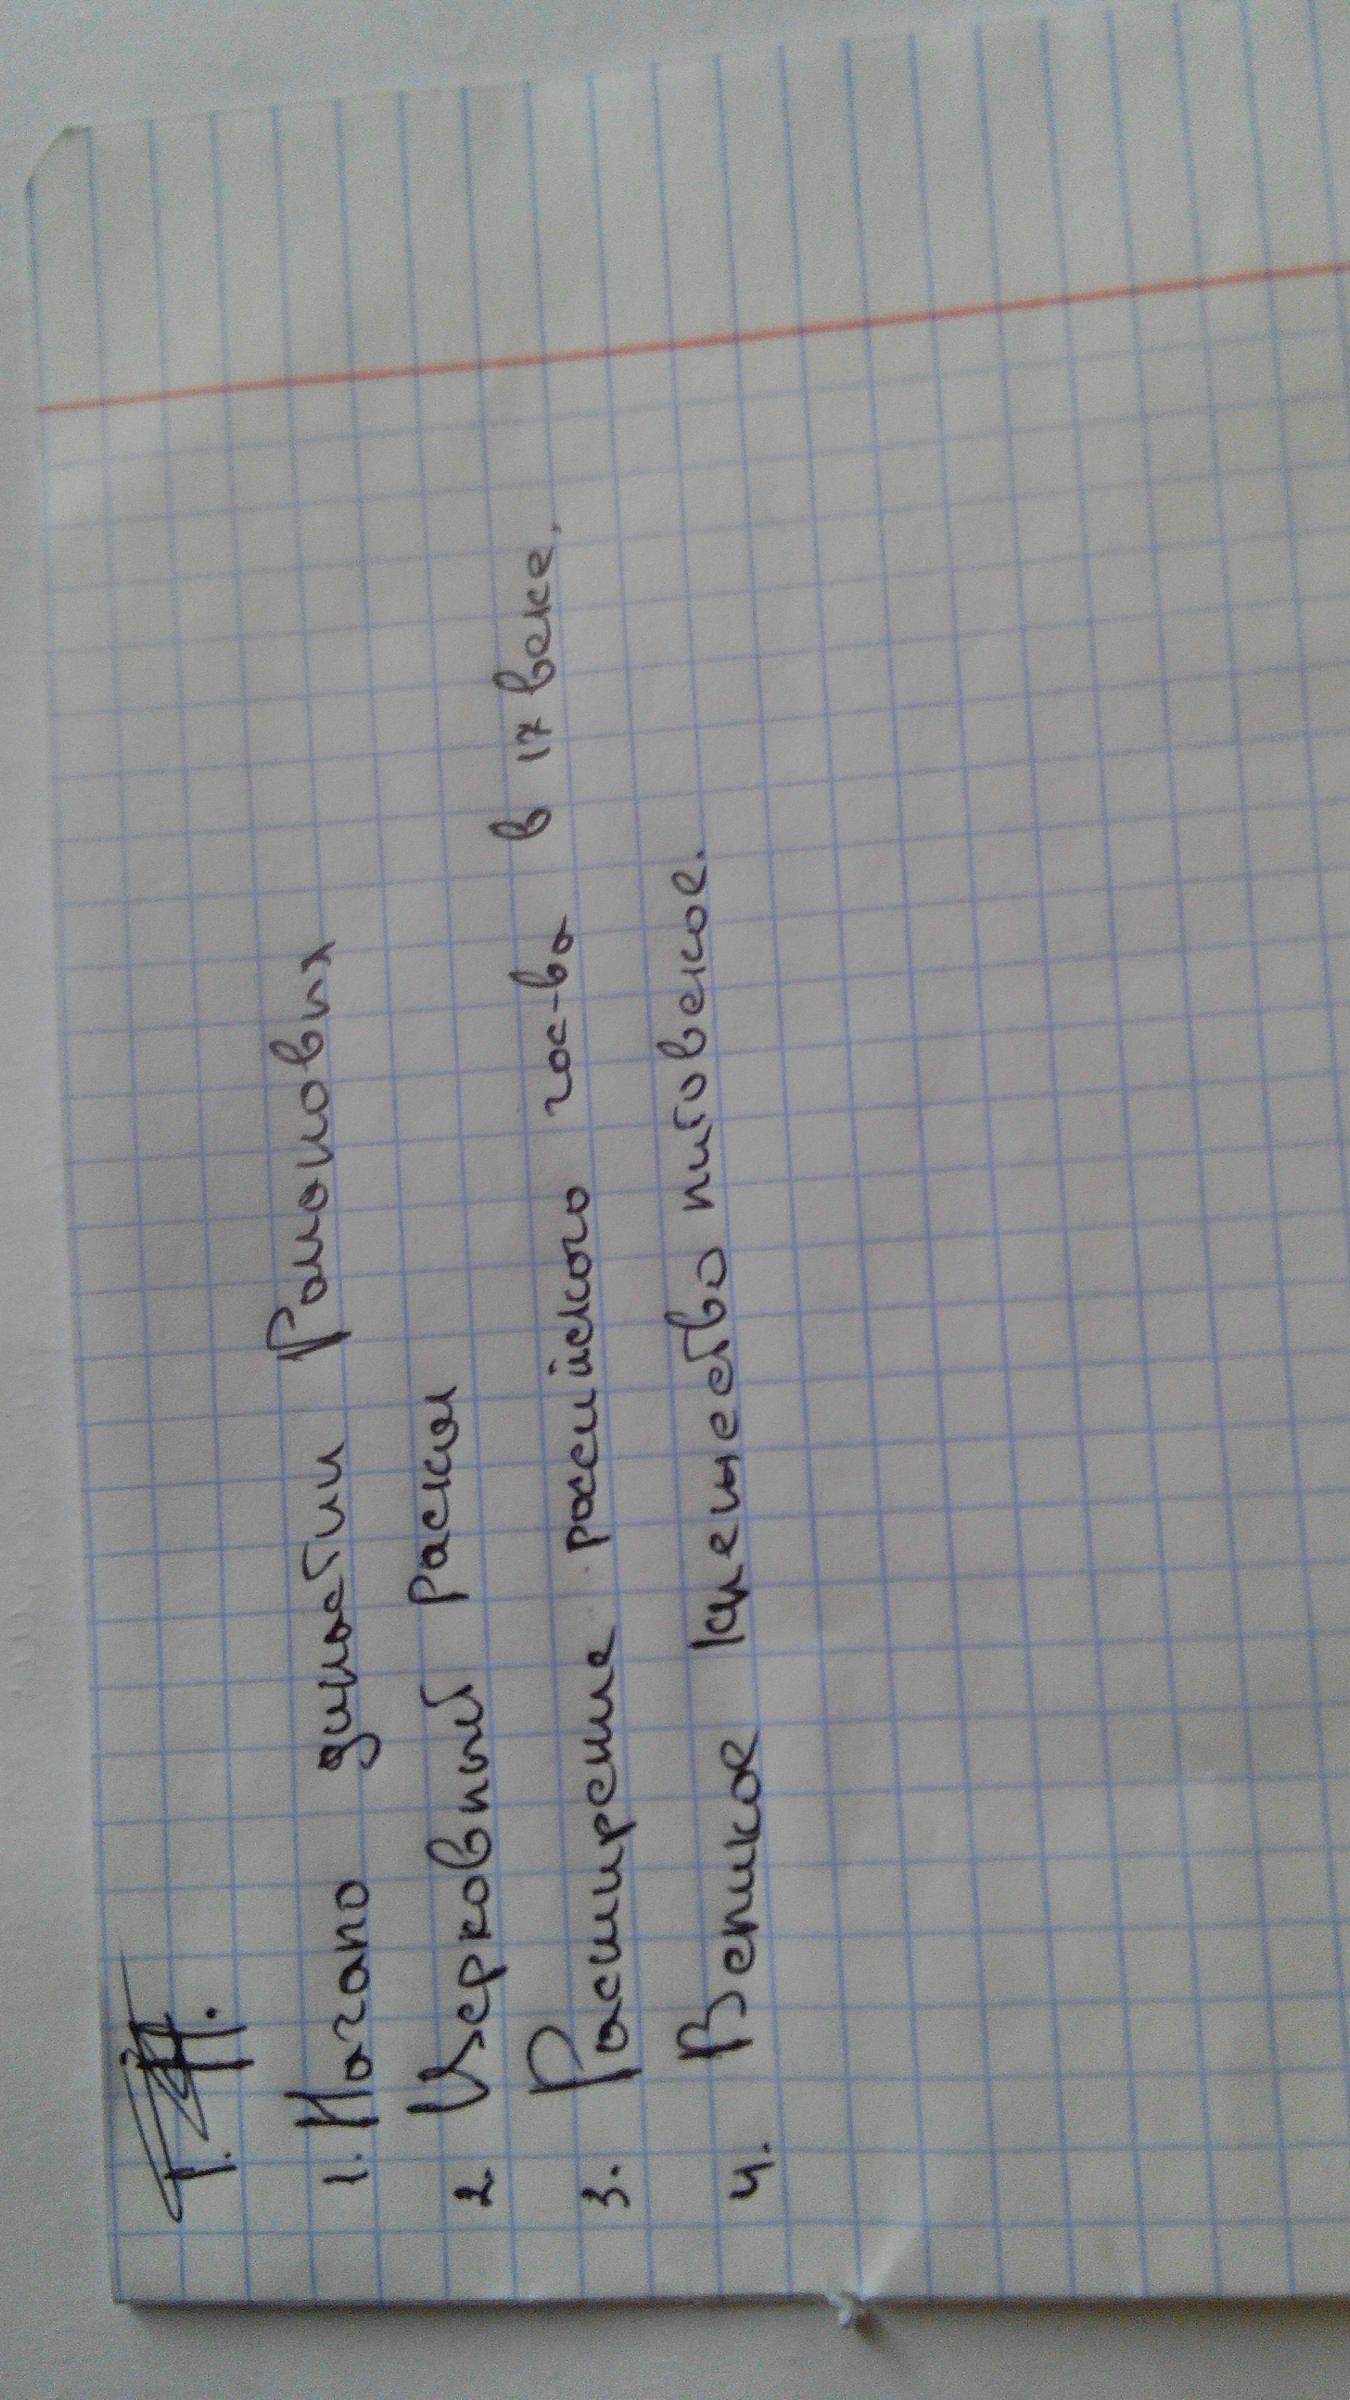 1. Начало династии Романовых
2. Церковный раскол
3. Расширение российского гос-ва в 17 веке.
4. Великое княжество литовское.